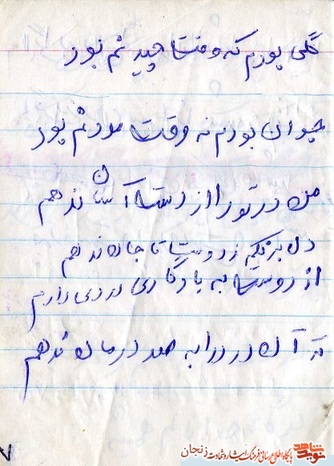 گلی بودم که وقت چیدنم نبود
جوان بودم نه وقت مردنم بود
من در تو را از دست آسان ندهم
دل بر نکنم ز دوست تا جان ندهم
از دوست به یادگاری دردی دارم
که آن درد را به صد درمان ندهم
نوید شاهد
پایگاه اطلاع رسانی فرهنگ ایثار و شهادت زنجان
۷